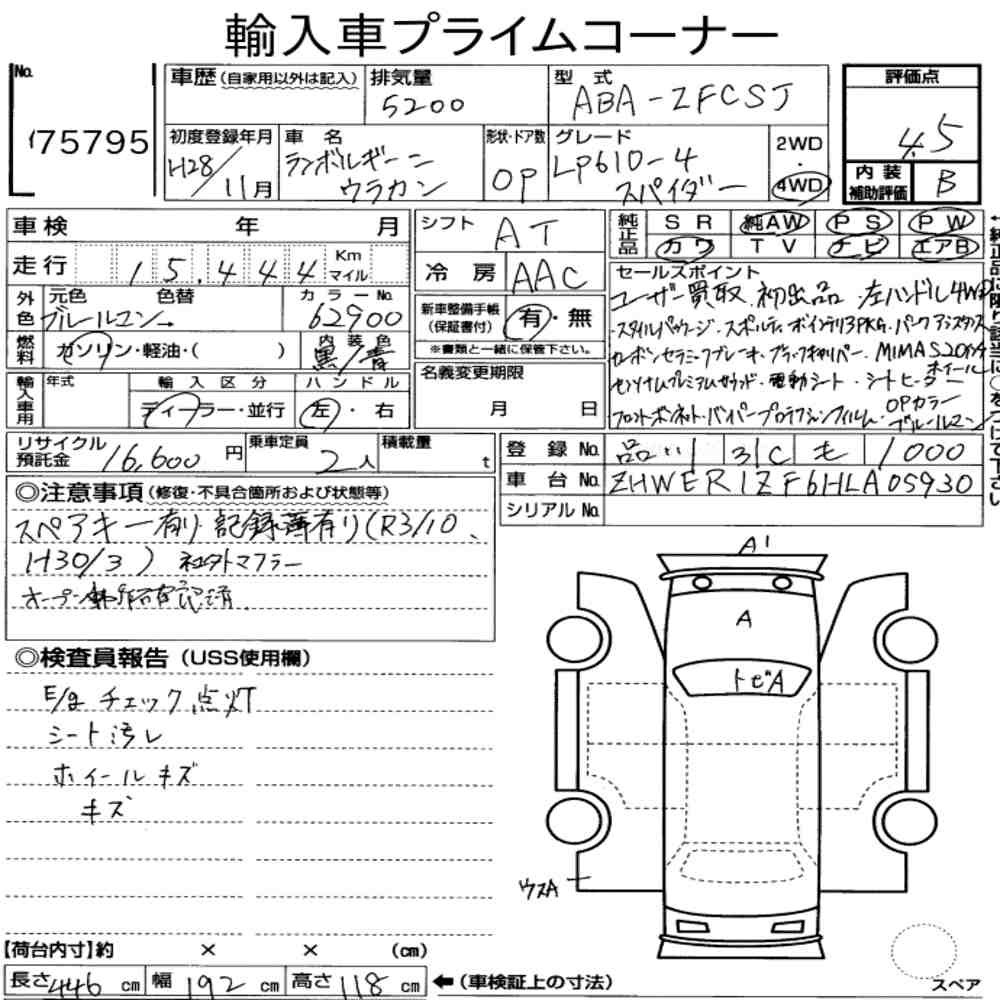 輸入車プライムコーナー
No.
75795
車歴 (自家用以外は記入) 排気量 5200 型式 ABA-ZFCSJ
初度登録年月 H28/11月 車名 ランボルギーニ ウラカン 形状・ドア数 OP グレード LP610-4 スパイダー 2WD・4WD
評価点 4.5
内装補助評価 B
車検 年 月
走行 15,444 Km マイル
外色 元色 色替 ブルールマン カラーNo. 62900
燃料 ガソリン・軽油・( ) 内装色 黒/青
輸入車用 年式 輸入区分 ディーラー・並行 ハンドル 左・右
シフト AT
冷房 AAC
新車整備手帳(保証書付) 有・無
※書類と一緒に保管下さい。
名義変更期限 月 日
純正品 SR 純AW PS PW
カワ TV ナビ エアB
←純正品に限り該当に○をつけて下さい
セールスポイント
ユーザー買取 初出品 左ハンドル4WD
・スタイルパッケージ・スポルティボインテリアPKG・パークアシスタンス
カーボンセラミックブレーキ・ブラックキャリパー・MIMAS20インチホイール
センソナムプレミアムサウンド・電動シート・シートヒーター
フロントボンネト・バイパープロテクションフィルム・OPカラーブルールマン
リサイクル預託金 16,600円 乗車定員 2人 積載量 t
登録No. 品川 310 も 1000
車台No. ZHWER1ZF6HLA05930
シリアルNo.
◎注意事項 (修復・不具合箇所および状態等)
スペアキー有り 記録簿有り(R3/10、
H30/3) 社外マフラー
オープン動作確認済
◎検査員報告 (USS使用欄)
E/gチェック点灯
シート汚レ
ホイールキズ
キズ
A1
A
トビA
ウスA
【荷台内寸】約 × × (cm)
長さ 446 cm 幅 192 cm 高さ 118 cm ←(車検証上の寸法)
スペア